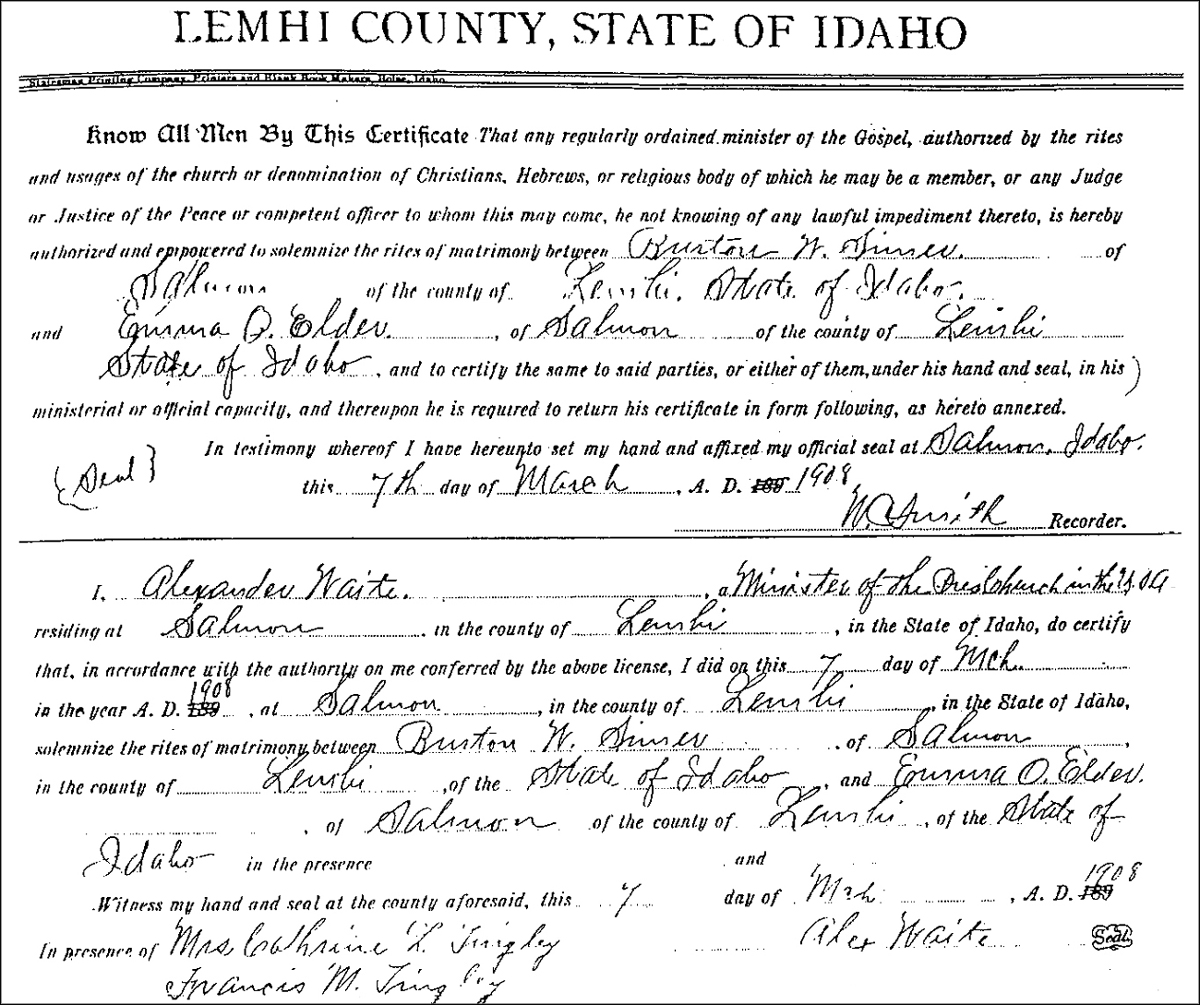 LEMHI COUNTY, STATE OF IDAHO
Statesman Printing Company, Printers and Blank Book Makers, Boise, Idaho
Know All Men By This Certificate That any regularly ordained minister of the Gospel, authorized by the rites
and usages of the church or denomination of Christians, Hebrews, or religious body of which he may be a member, or any Judge
or Justice of the Peace or competent officer to whom this may come, he not knowing of any lawful impediment thereto, is hereby
authorized and empowered to solemnize the rites of matrimony between Burton W. of
Salmon of the county of Lemhi, State of Idaho.
and Emma O. Elder. , of Salmon of the county of Lemhi
State of Idaho , and to certify the same to said parties, or either of them, under his hand and seal, in his
ministerial or official capacity, and thereupon he is required to return his certificate in form following, as hereto annexed.
In testimony whereof I have hereunto set my hand and affixed my official seal at Salmon, Idaho.
{Seal} this 7th day of March , A. D. 189 1908
W C Smith Recorder.
I, Alexander Waite. , a Minister of the Pres Church in the U S A
residing at Salmon , in the county of Lemhi , in the State of Idaho, do certify
that, in accordance with the authority on me conferred by the above license, I did on this 7 day of Mch.
in the year A. D. 189 1908 , at Salmon , in the county of Lemhi , in the State of Idaho,
solemnize the rites of matrimony between Burton W. of Salmon ,
in the county of Lemhi , of the State of Idaho , and Emma O. Elder.
, of Salmon of the county of Lemhi , of the State of
Idaho in the presence and
Witness my hand and seal at the county aforesaid, this 7 day of Mch , A. D. 189 1908
In presence of Mrs Cathrine L. Tingley Alex Waite Seal
Francis M. Tingley